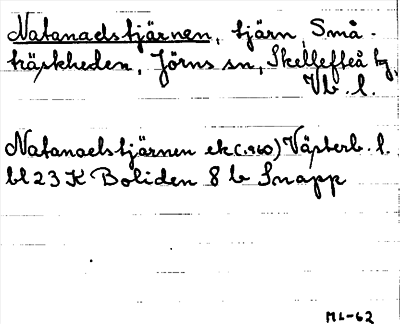 Natanaelstjärnen, tjärn, Små-
träskheden, Jörns sn, Skellefteå tg,
Vb. l.
Natanaelstjärnen ek (1960) Västerb. l.
bl 23 K Boliden 8 b Snapp
ML-62